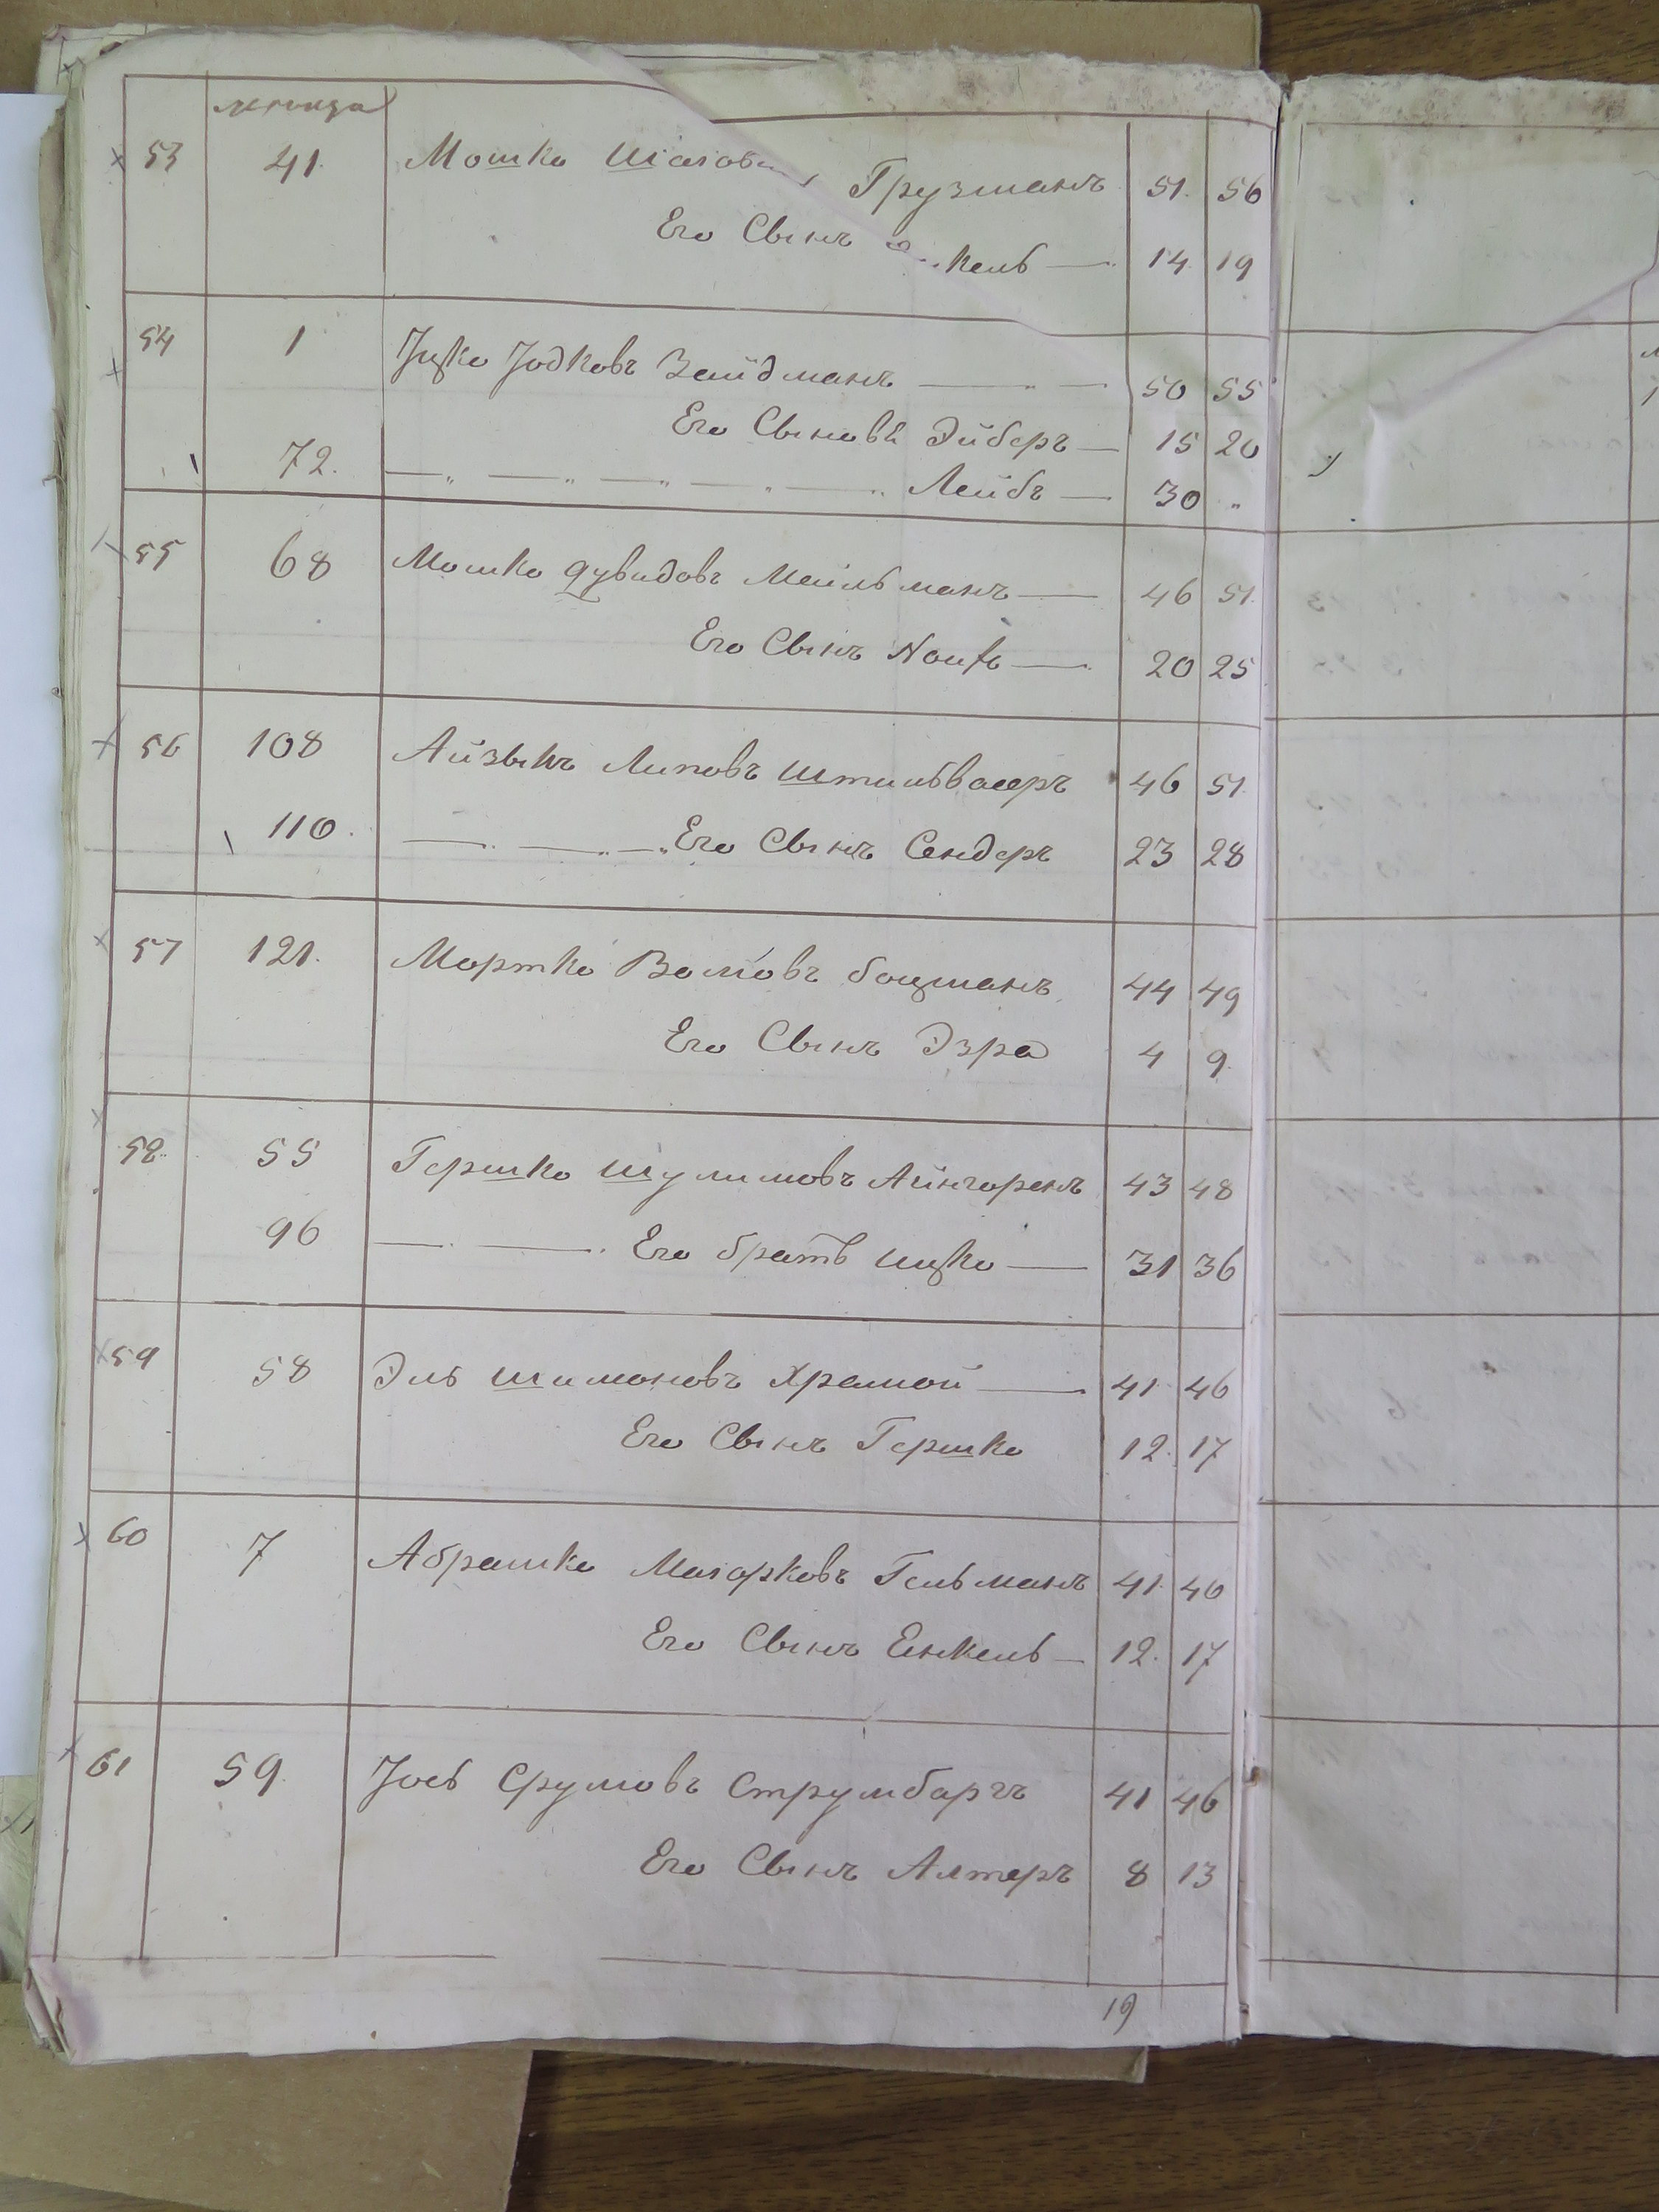 53 41. Мошко Грузманъ 51. 56
Его Сынъ 14 19
54 1 Іцко Іодковъ Зейдманъ 50 55
Его Сыновъя Эйберъ 15 20
72. Лейбъ 30 „
55 68 Мошко Дувидовъ Мейльманъ 46 51.
Его Сынъ 20 25
56 108 Айзыкъ Липовъ Штильвасеръ 46 51.
110. Его Сынъ Сендеръ 23 28
57 121. Мортко Волговъ Боцманъ 44 49
Его Сынъ Эзра 4 9.
58 55 Гершко Шулимовъ Айнгоренъ 43 48
96 Его братъ Ицко 31 36
59 58 Эль Шимоновъ Храмой 41 46
Его Сынъ Гершко 12. 17
60 7 Абрашко Гельманъ 41. 46
Его Сынъ Енкель 12. 17
61 59. Іосъ Срумовъ Струмбаргъ 41 46
Его Сынъ Алтеръ 8 13
19